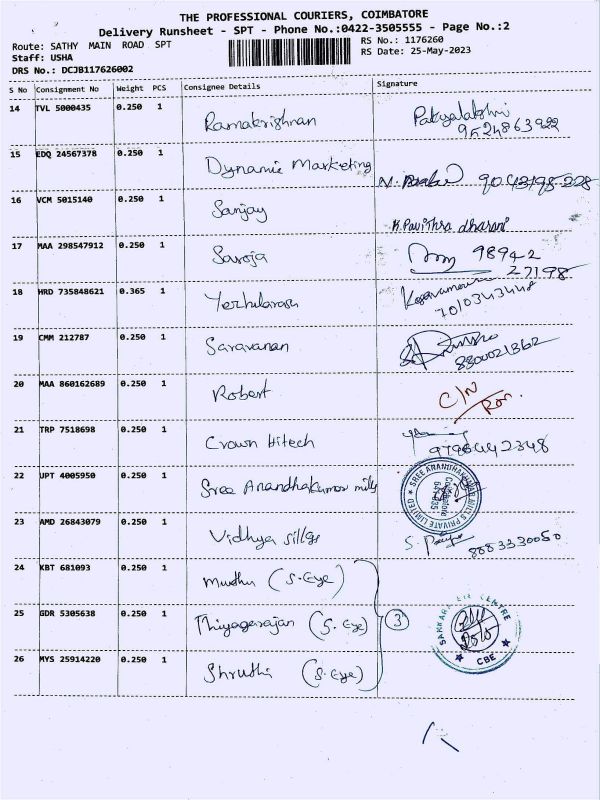 THE PROFESSIONAL COURIERS, COIMBATORE
Delivery Runsheet - SPT - Phone No.:0422-3505555 - Page No.:2
Route: SATHY MAIN ROAD SPT
RS No.: 1176260
Staff: USHA
RS Date: 25-May-2023
DRS No.: DCJB117626002
S No Consignment No Weight PCS Consignee Details Signature
14 TVL 5000435 0.250 1 Ramakrishnan
9524863922
15 EDQ 24567378 0.250 1 Dynamic Marketing
16 VCM 5015140 0.250 1 Sanjay K.Pavithra dharani
17 MAA 298547912 0.250 1 Saroja 98942
27198
18 HRD 735848621 0.365 1 Yezhilarasu
7010343448
19 CMM 212787 0.250 1 Saravanan
8300021362
20 MAA 860162689 0.250 1 Robert C/N
21 TRP 7518698 0.250 1 Crown Hitech
22 UPT 4005950 0.250 1 Sree Anandhakumar mills SREE ANANDHAKUMAR MILLS PRIVATE LIMITED
Coimbatore
23 AMD 26843079 0.250 1 Vidhya sillgs 8883330050
24 KBT 681093 0.250 1 Muthu (S.Eye)
25 GDR 5305638 0.250 1 Thiyagarajan (S.Eye) 3 SANKARA EYE CENTRE
CBE
26 MYS 25914220 0.250 1 Shruthi (S.Eye)